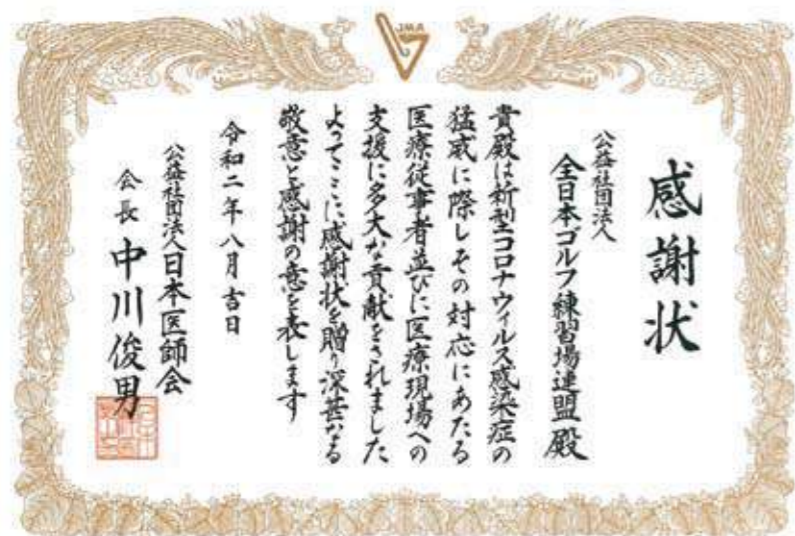 JMA
感謝状
公益社団法人
全日本ゴルフ練習場連盟 殿
貴殿は新型コロナウィルス感染症の
猛威に際しその対応にあたる
医療従事者並びに医療現場への
支援に多大な貢献をされました
よってここに感謝状を贈り深甚なる
敬意と感謝の意を表します
令和二年八月吉日
公益社団法人日本医師会
会長 中川俊男